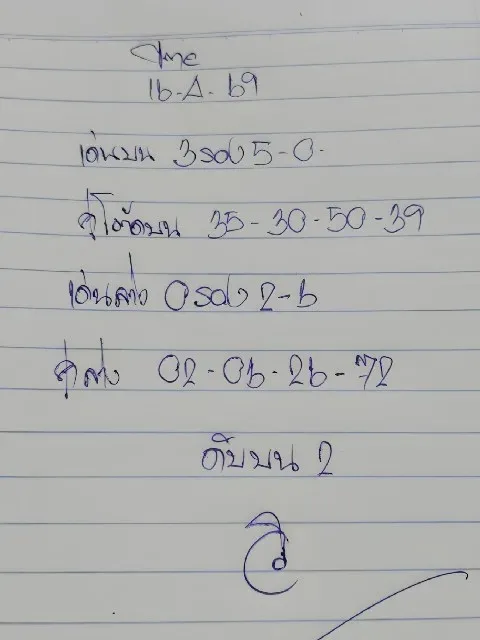 ไทย
16-ก-69
เด่นบน 3รอง5-0-
คู่โต๊ดบน 35-30-50-39
เด่นล่าง 0รอง2-6
คู่ล่าง 02-06-26-72
ดับบน 2